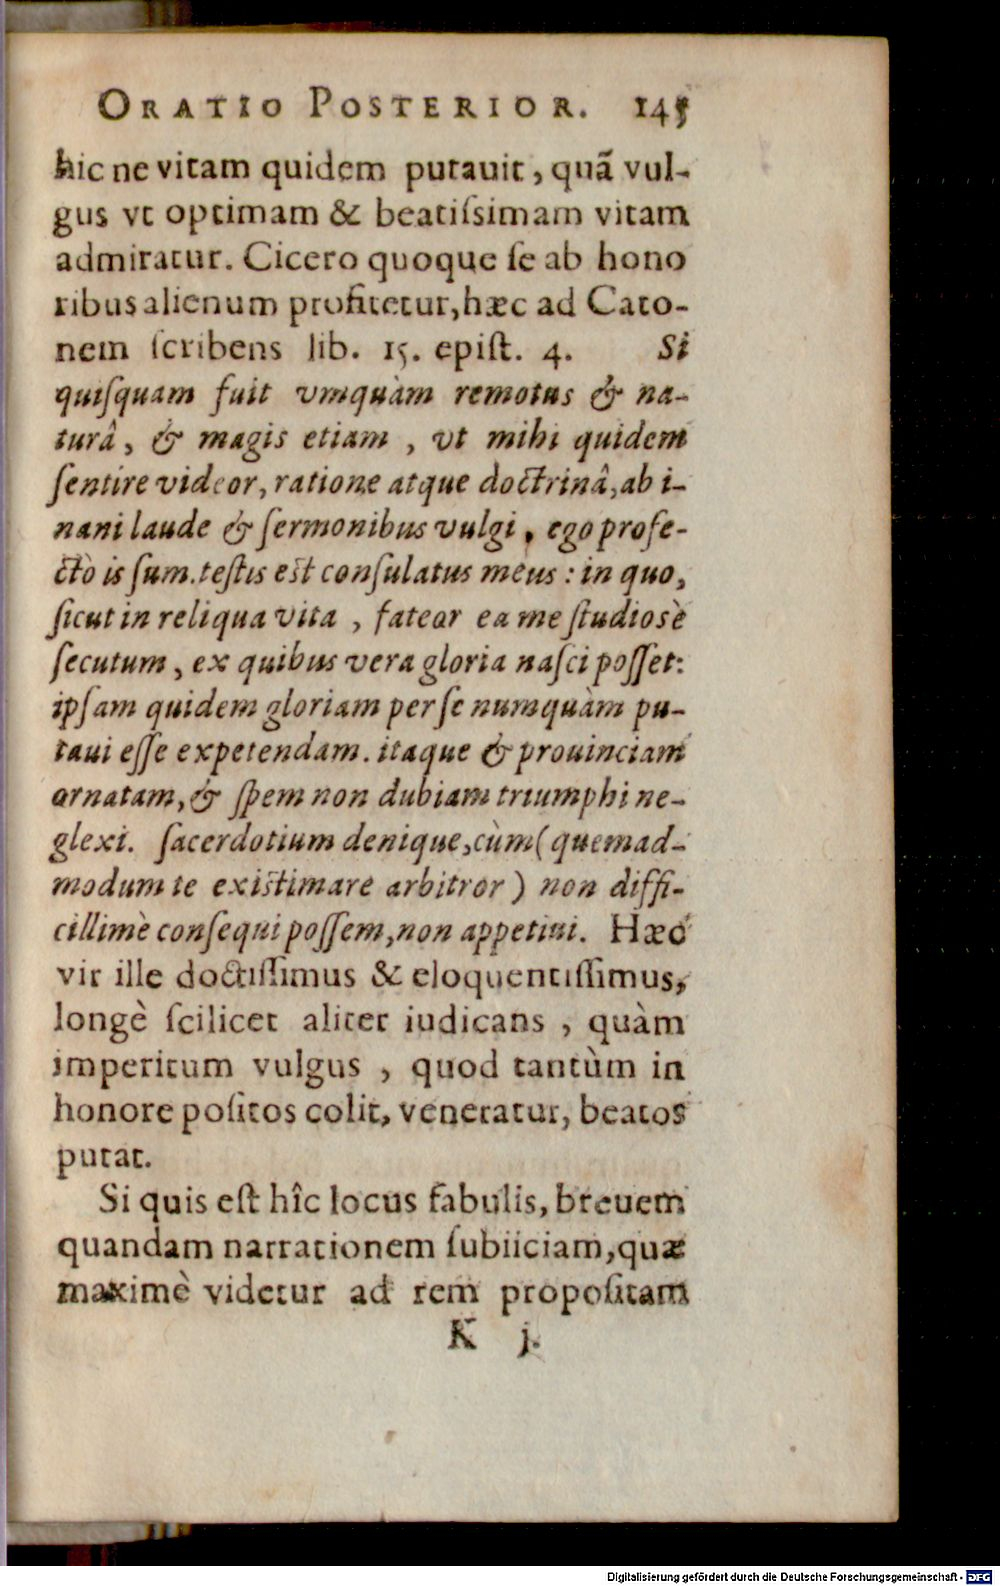 ORATIO POSTERIOR. 145
hic ne vitam quidem putauit, quã vul-
gus vt optimam & beatiſsimam vitam
admiratur. Cicero quoque ſe ab hono
ribus alienum profitetur, hæc ad Cato-
nem ſcribens lib. 15. epiſt. 4. Si
quiſquam fuit vmquàm remotus & na-
turâ, & magis etiam, vt mihi quidem
ſentire videor, ratione atque doctrinâ, ab i-
nani laude & ſermonibus vulgi, ego profe-
ctò is ſum. teſtis eſt conſulatus meus: in quo,
ſicut in reliqua vita, fateor ea me ſtudiosè
ſecutum, ex quibus vera gloria naſci poſſet:
ipſam quidem gloriam per ſe numquàm pu-
taui eſſe expetendam. itaque & prouinciam
ornatam, & ſpem non dubiam triumphi ne-
glexi. ſacerdotium denique, cùm (quemad-
modum te exiſtimare arbitror) non diffi-
cillimè conſequi poſſem, non appetiui. Hæc
vir ille doctiſſimus & eloquentiſſimus,
longè ſcilicet aliter iudicans, quàm
imperitum vulgus, quod tantùm in
honore poſitos colit, veneratur, beatos
putat.
Si quis eſt hîc locus fabulis, breuem
quandam narrationem ſubiiciam, quæ
maximè videtur ad rem propoſitam
K j.
Digitalisierung gefördert durch die Deutsche Forschungsgemeinschaft - DFG